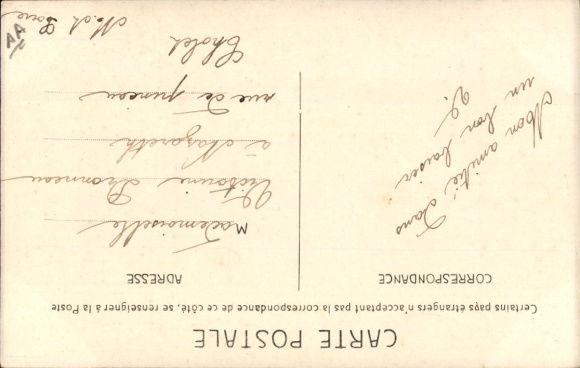 CARTE POSTALE
Certains pays étrangers n'acceptant pas la correspondance de ce côté, se renseigner à la Poste
CORRESPONDANCE
Mon amitié dans
un bon baiser
ADRESSE
Mademoiselle
M
Victorine
à Nazareth
rue de
Cholet
M. et Loire
AA